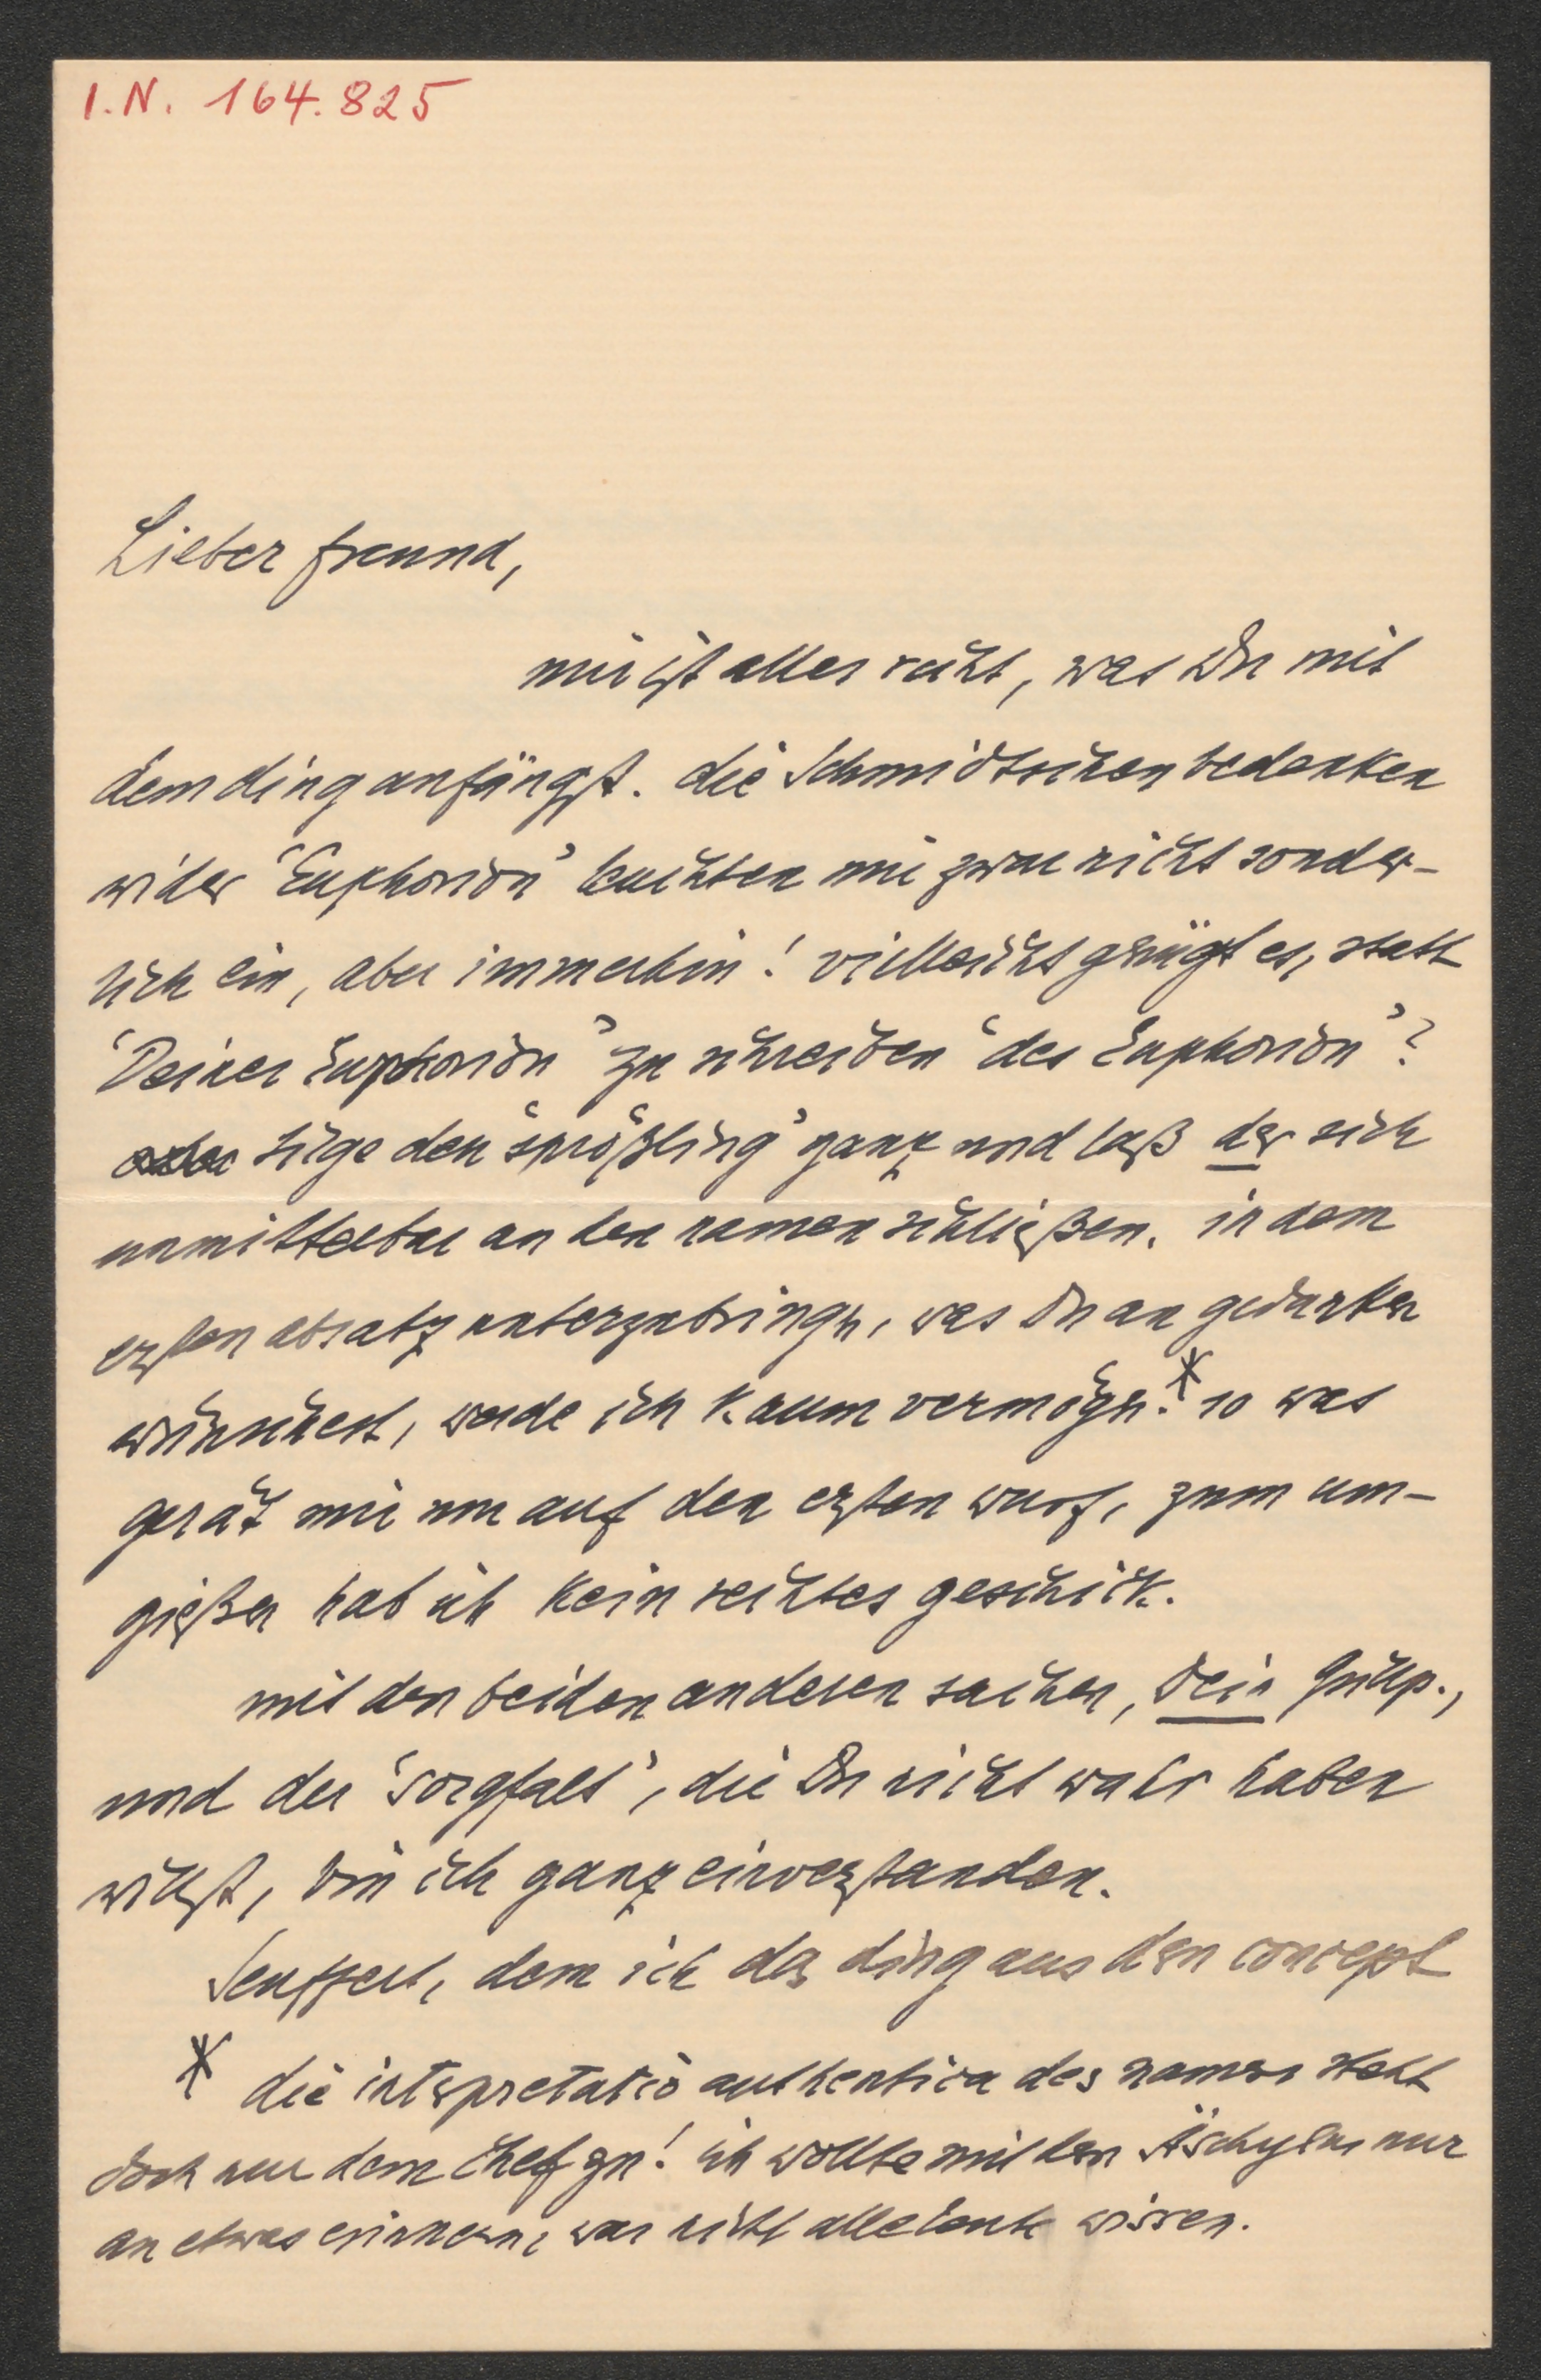 I.N. 164.825
Lieber freund,
mir ist alles recht, was Du mit
dem ding anfängst. die Schmidtschen bedenken
wider 'Euphorion' leuchten mir zwar nicht sonder-
lich ein, aber immerhin! vielleicht genügt es, statt
'Deines Euphorion' zu schreiben 'des Euphorion'?
oder tilge den 'sprößling' ganz und laß der sich
unmittelbar an den namen schließen. in dem
ersten absatz unterzubringen, was Du an gedanken
wünschest, werde ich kaum vermögen.* so was
gerät mir nur auf den ersten wurf, zum um-
gießen hab ich kein rechtes geschick.
mit den beiden anderen sachen, Dein
und der 'sorgfalt', die Du nicht wahr haben
willst, bin ich ganz einverstanden.
Seuffert, dem ich das ding aus dem concept
* die interpretatio authentica des namens steht
doch nur dem chef zu! ich wollte mit dem Äschylus nur
an etwas erinnern, was nicht alle leute wissen.